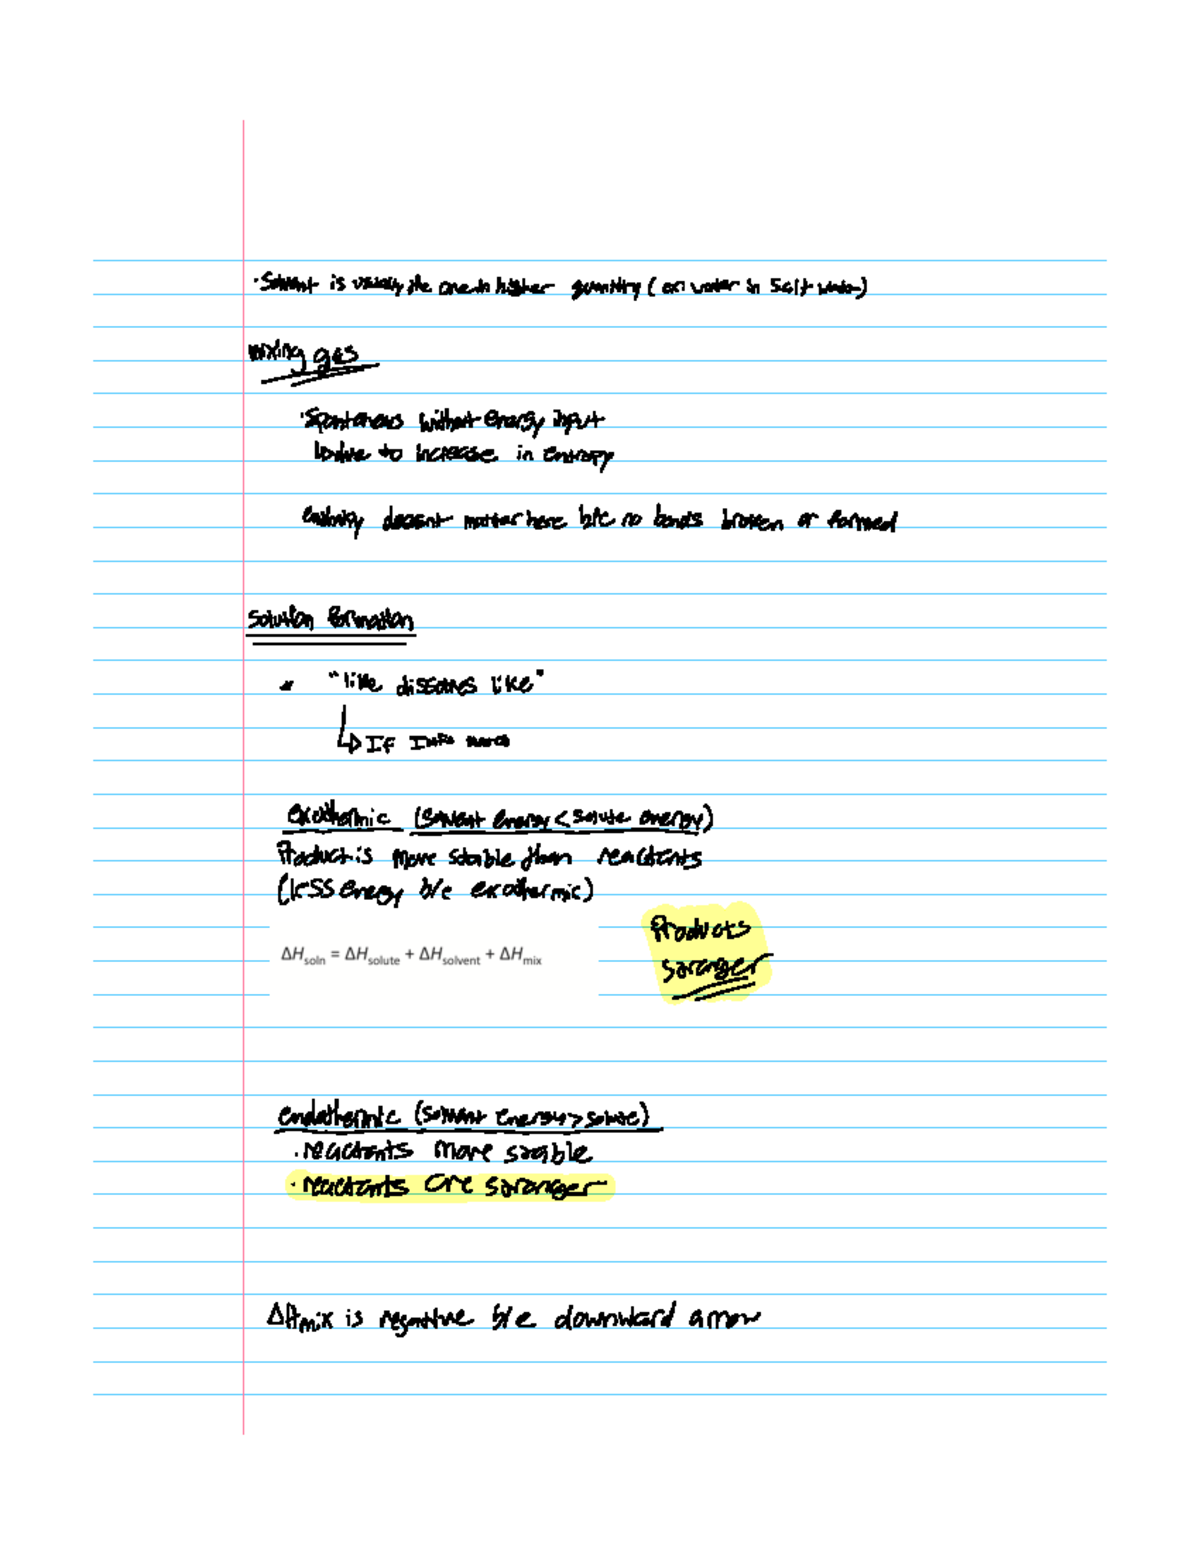 · Solvent is usually the one in higher quantity (ex: water in salt water)
mixing gas
· Spontaneous without energy input
↳ due to increase in entropy
doesnt matter here b/c no bonds broken or formed
Solution formation
"like dissolves like"
↳ If IMFs
exothermic (solvent energy < solute energy)
Product is more stable than reactants
(less energy b/c exothermic)
ΔHsoln = ΔHsolute + ΔHsolvent + ΔHmix
Products
stronger
endothermic (solvent energy > solute)
· reactants more stable
· reactants are stronger
ΔHmix is negative b/c downward arrow